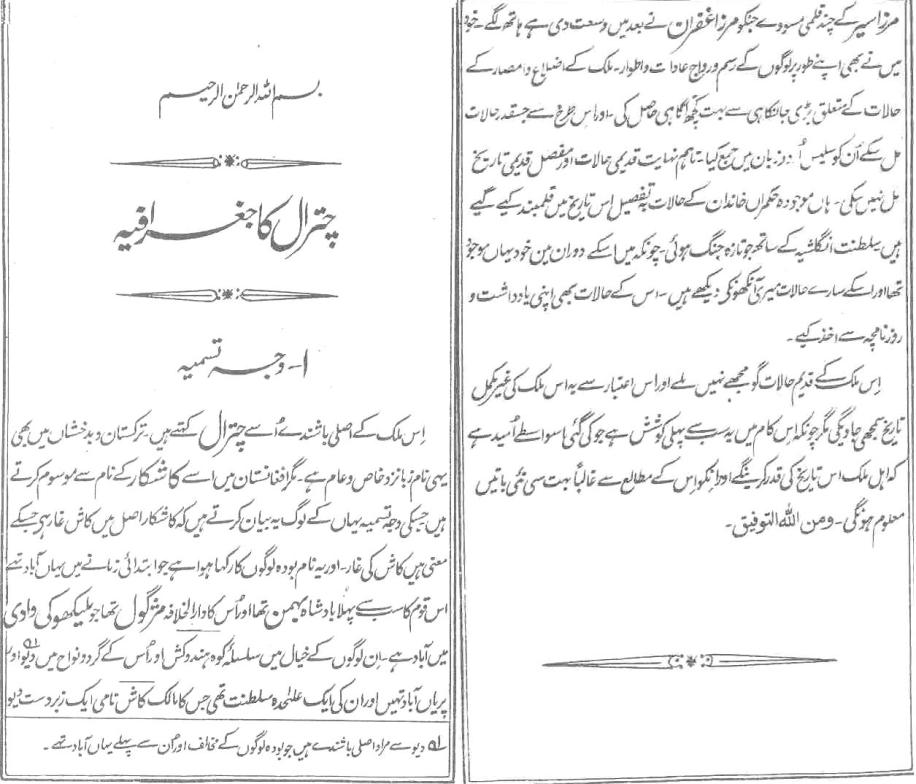 مرزا سیر کے چند قلمی مسودے جنکو مرزا غفران نے بعد میں وسعت دی ہے ہاتھ لگے۔ خود
میں نے بھی اپنے طور پر لوگوں کے رسم و رواج عادات و اطوار۔ ملک کے اضلاع و امصار کے
حالات کے متعلق بڑی جانکاہی سے بہت کچھ آگاہی حاصل کی۔ اور اس طرح سے جسقدر حالات
مل سکے اُن کو سلیس اُردو زبان میں جمع کیا۔ تاہم نہایت قدیمی حالات اور مفصل قدیمی تاریخ
مل نہیں سکی۔ ہاں موجودہ حکمراں خاندان کے حالات بہ تفصیل اس تاریخ میں قلمبند کیے گیے
ہیں سلطنت انگلشیہ کے ساتھ جو تازہ جنگ ہوئی۔ چونکہ میں اسکے دوران میں خود یہاں موجود
تھا اور اسکے سارے حالات میری آنکھونکی دیکھے ہیں۔ اس کے حالات بھی اپنی یادداشت و
روزنامچہ سے اخذ کیے۔
اِس ملک کے قدیم حالات گو مجھے نہیں ملے اور اس اعتبار سے یہ اس ملک کی غیر مکمل
تاریخ سمجھی جاویگی مگر چونکہ اِس کام میں یہ سب سے پہلی کوشش ہے جو کی گئی اسواسطے اُمید ہے
کہ اہل ملک اس تاریخ کی قدر کرینگے اور انکو اس کے مطالع سے غالباً بہت سی نئی باتیں
معلوم ہونگی۔ ومن اللہ التوفیق۔
بسم اللہ الرحمٰن الرحیم
چترال کا جغرافیہ
۱۔ وجہ تسمیہ
اِس ملک کے اصلی باشندے اُسے چترال کہتے ہیں۔ ترکستان و بدخشاں میں بھی
یہی نام زبانزد خاص و عام ہے۔ مگر افغانستان میں اسے کاشکار کے نام سے موسوم کرتے
ہیں جسکی وجہ تسمیہ یہاں کے لوگ یہ بیان کرتے ہیں کہ کاشکار اصل میں کاش غار ہے جسکے
معنی ہیں کاش کی غار۔ اور یہ نام بودہ لوگوں کا رکھا ہوا ہے جو ابتدائی زمانے میں یہاں آباد تھے
اس قوم کا سب سے پہلا بادشاہ بہمن تھا اور اُس کا دارالخلافہ مژگول تھا جو ملیکھو کی وادی
میں آباد ہے۔ اِن لوگوں کے خیال میں سلسلۂ کوہ ہندوکش اور اُس کے گرد و نواح میں دیو اور
پریاں آباد تہیں اور ان کی ایک علیحدہ سلطنت تھی جس کا مالک کاش نامی ایک زبردست دیو
ا؎ دیو سے مراد اصلی باشندے ہیں جو بودہ لوگوں کے مخالف اور اُن سے پہلے یہاں آباد تھے۔